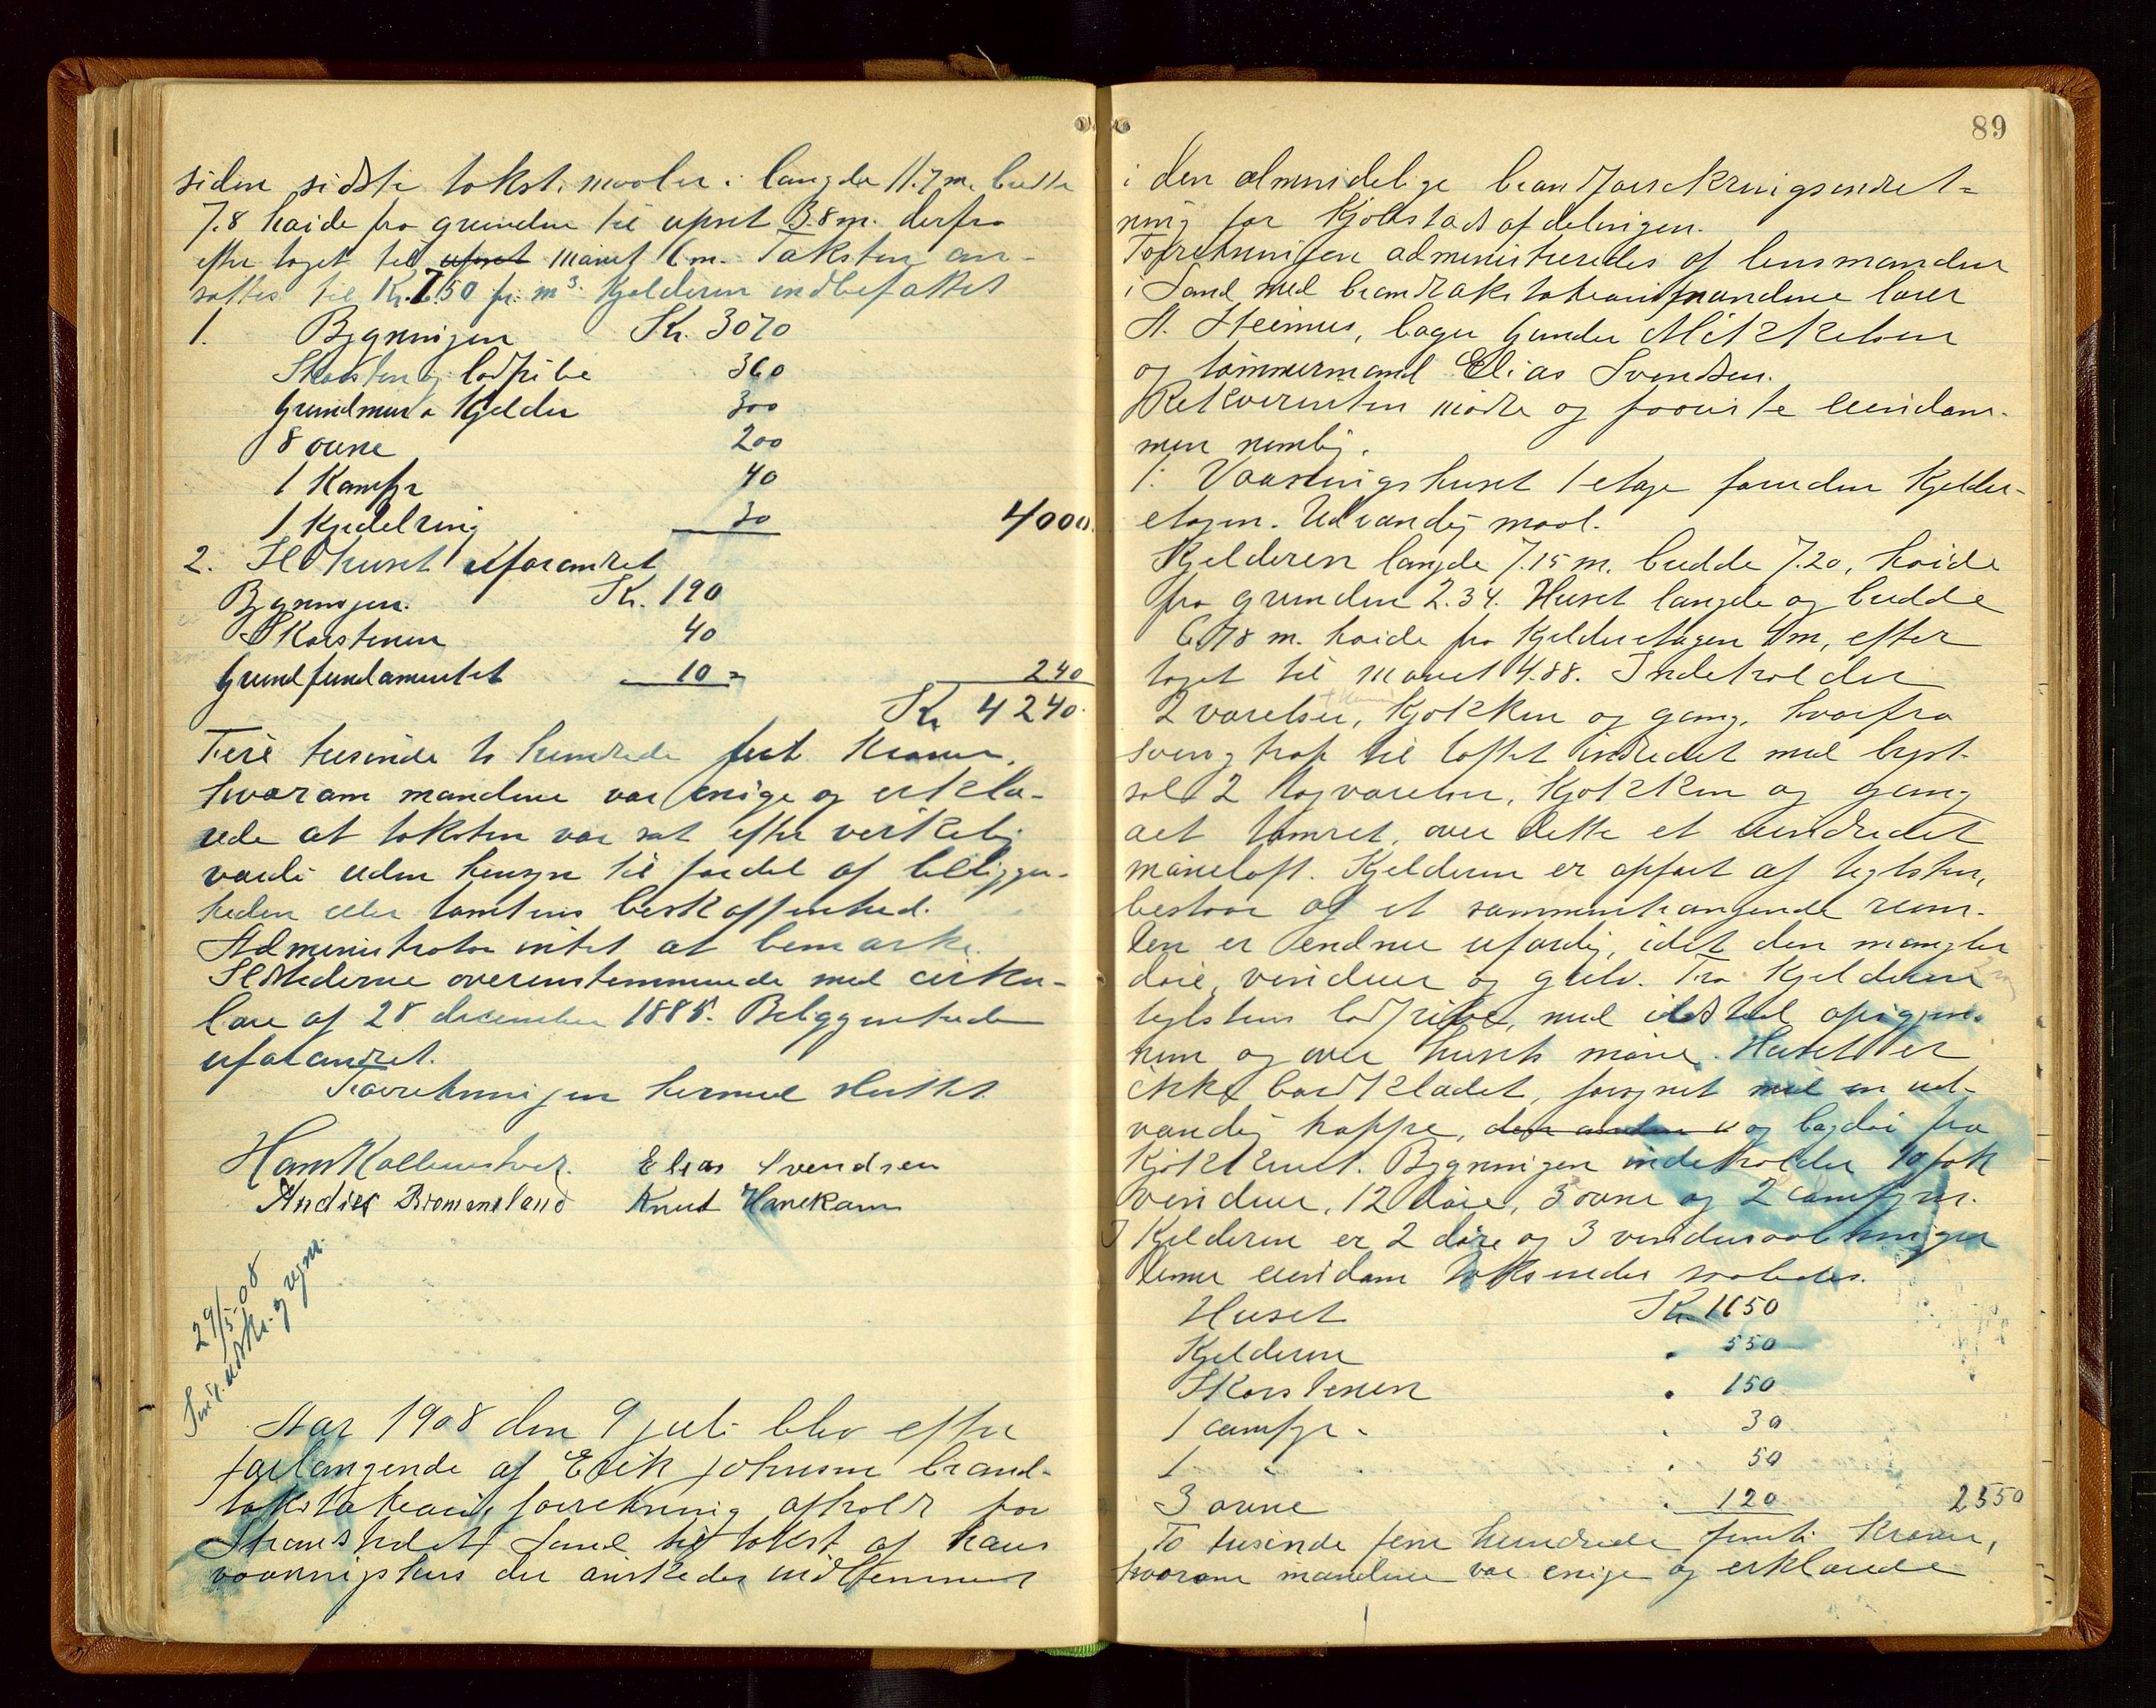 siden sidste takst, maaler i længde 11.7 m. bredde
7.8 høide fra grunden til upset 3.8 m. derfra
efter taget til upset mønet 6 m. Taksten an-
sattes til Kr. 7.50 pr. m3. Kjelderen indbefattet
1. Bygningen Kr. 3070
Skorsten og lodpibe 360
Grundmur & Kjelder 300
8 ovne 200
1 Komfyr 40
1 Kjedelring 30 4000.
2. Ildhuset uforandret
Bygningen. Kr. 190
Skorstenen 40
Grundfundamentet 10 = 240
Kr 4240.
Fire tusinde to hundrede førti Kroner,
hvorom mændene var enige og erklæ-
rede at taksten var sat efter virkelig
værdi uden hensyn til fordel af beliggen-
heden eller tomtens beskaffenhed.
Administrator intet at bemærke.
Ildstederne overensstemmende med cirku-
lære af 28 december 1885. Beliggenheden
uforandret.
Forretningen hermed sluttet.
Hans Kallenstvedt. Elias Svendsen
Andres Brommeland Knut Hanekam
29/5-08
udskr. og
Aar 1908 den 9 juli blev efter
forlangende af Erik Johnsen brand-
takstationsforretning afholdt paa
Strandstedet Sand til takst af hans
vaaningshus der ønskedes indlemmet
89
i den almindelige brandforsikringsindret-
ning for Kjøbstadsafdelingen.
Forretningen administreredes af lensmanden
i Sand med brandtakstationsmændene lærer
A. Steimes, bager Gunder Mikkelsen
og tømmermand Elias Svendsen.
Rekvirenten mødte og paaviste eiendom-
men nemlig.
1. Vaaningshuset 1 etage foruden Kjelder-
etagen. Udvændig maal.
Kjelderen længde 7.15 m. bredde 7.20, høide
fra grunden 2.34. Huset længde og bredde
6.78 m. høide fra Kjelderetagen 4 m, efter
taget til mønet 4.88. Indeholder
2 værelser, Kjøkken og gang, hvorfra
svingtrap til loftet indredet med byst-
sal 2 tagværelser, Kjøkken og gang
alt tømret, over dette et uindredet
møneloft. Kjelderen er opført af teglsten,
bestaar af et sammenhængende rum.
Den er endnu ufærdig, idet den mangler
døre, vinduer og gulv. Fra Kjelderen
teglstens lodpibe, med ildsted opigjen-
nem og over husets møne. Huset er
ikke bordklædet, forsynet med en ud-
vændig trappe, den anden og bagdør fra
Kjøkkenet. Bygningen indeholder 10 fak
vinduer, 12 døre, 3 ovne og 2 comfyrer.
I Kjelderen er 2 døre og 3 vindusaabninger
Denne eiendom takseredes saaledes.
Huset Kr. 1650
Kjelderen " 550
Skorstenen " 150
1 comfyr " 30
1 " " 50
3 ovne " 120 2550
To tusinde fem hundrede femti Kroner,
hvorom mændene var enige og erklærede